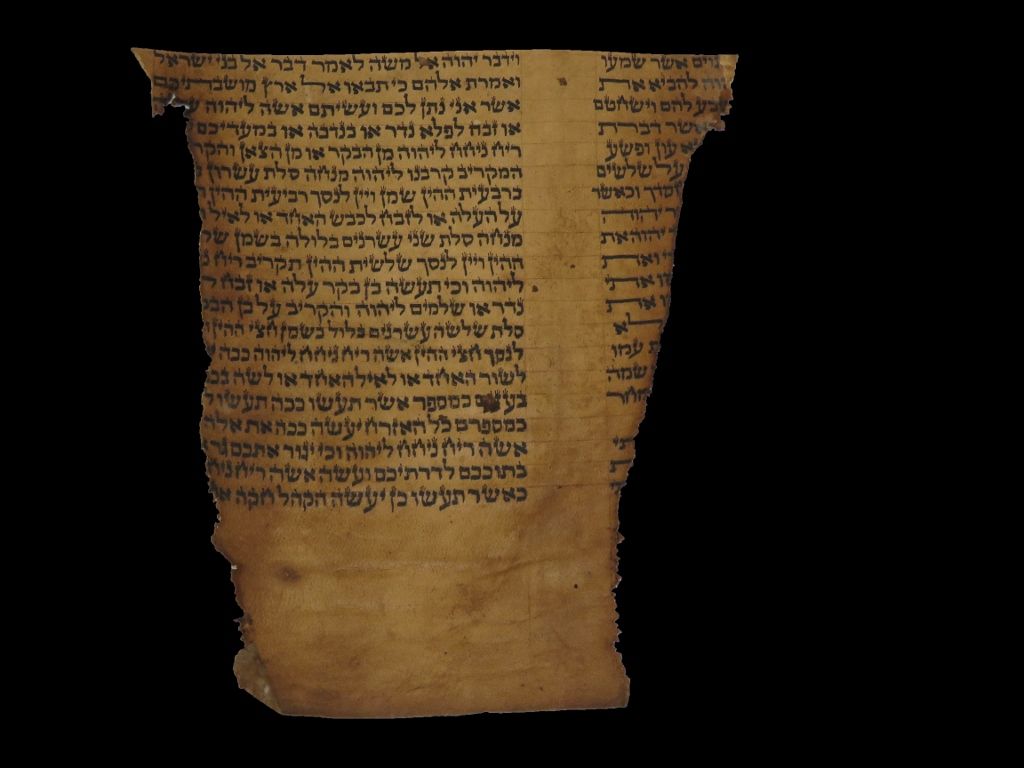 גוים אשר שמעו
להביא את
שבע להם וישחטם
כאשר דברת
עון ופשע
על שלשים
חסדך וכאשר
יהוה
יהוה את
ואת
אתי
את
לא
עמו
שמה
מחר
וידבר יהוה אל משה לאמר דבר אל בני ישראל
ואמרת אלהם כי תבאו אל ארץ מושבתיכם
אשר אני נתן לכם ועשיתם אשה ליהוה
או זבח לפלא נדר או בנדבה או במעדיכם
ריח ניחח ליהוה מן הבקר או מן הצאן
המקריב קרבנו ליהוה מנחה סלת עשרון
ברבעית ההין שמן ויין לנסך רביעית ההין
על העלה או לזבח לכבש האחד או לאיל
מנחה סלת שני עשרנים בלולה בשמן
ההין ויין לנסך שלשית ההין תקריב ריח
ליהוה וכי תעשה בן בקר עלה או זבח
נדר או שלמים ליהוה והקריב על בן
סלת שלשה עשרנים בלול בשמן חצי ההין
לנסך חצי ההין אשה ריח ניחח ליהוה ככה
לשור האחד או לאיל האחד או לשה
כמספר אשר תעשו ככה תעשו
כמספרם כל האזרח יעשה ככה את אלה
אשה ריח ניחח ליהוה וכי יגור אתכם
בתוככם לדרתיכם ועשה אשה ריח
כאשר תעשו כן יעשה הקהל חקה